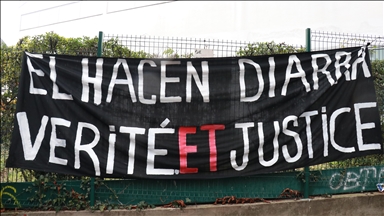 EL HACEN DIARRA
VERITÉ ET JUSTICE
OBTK